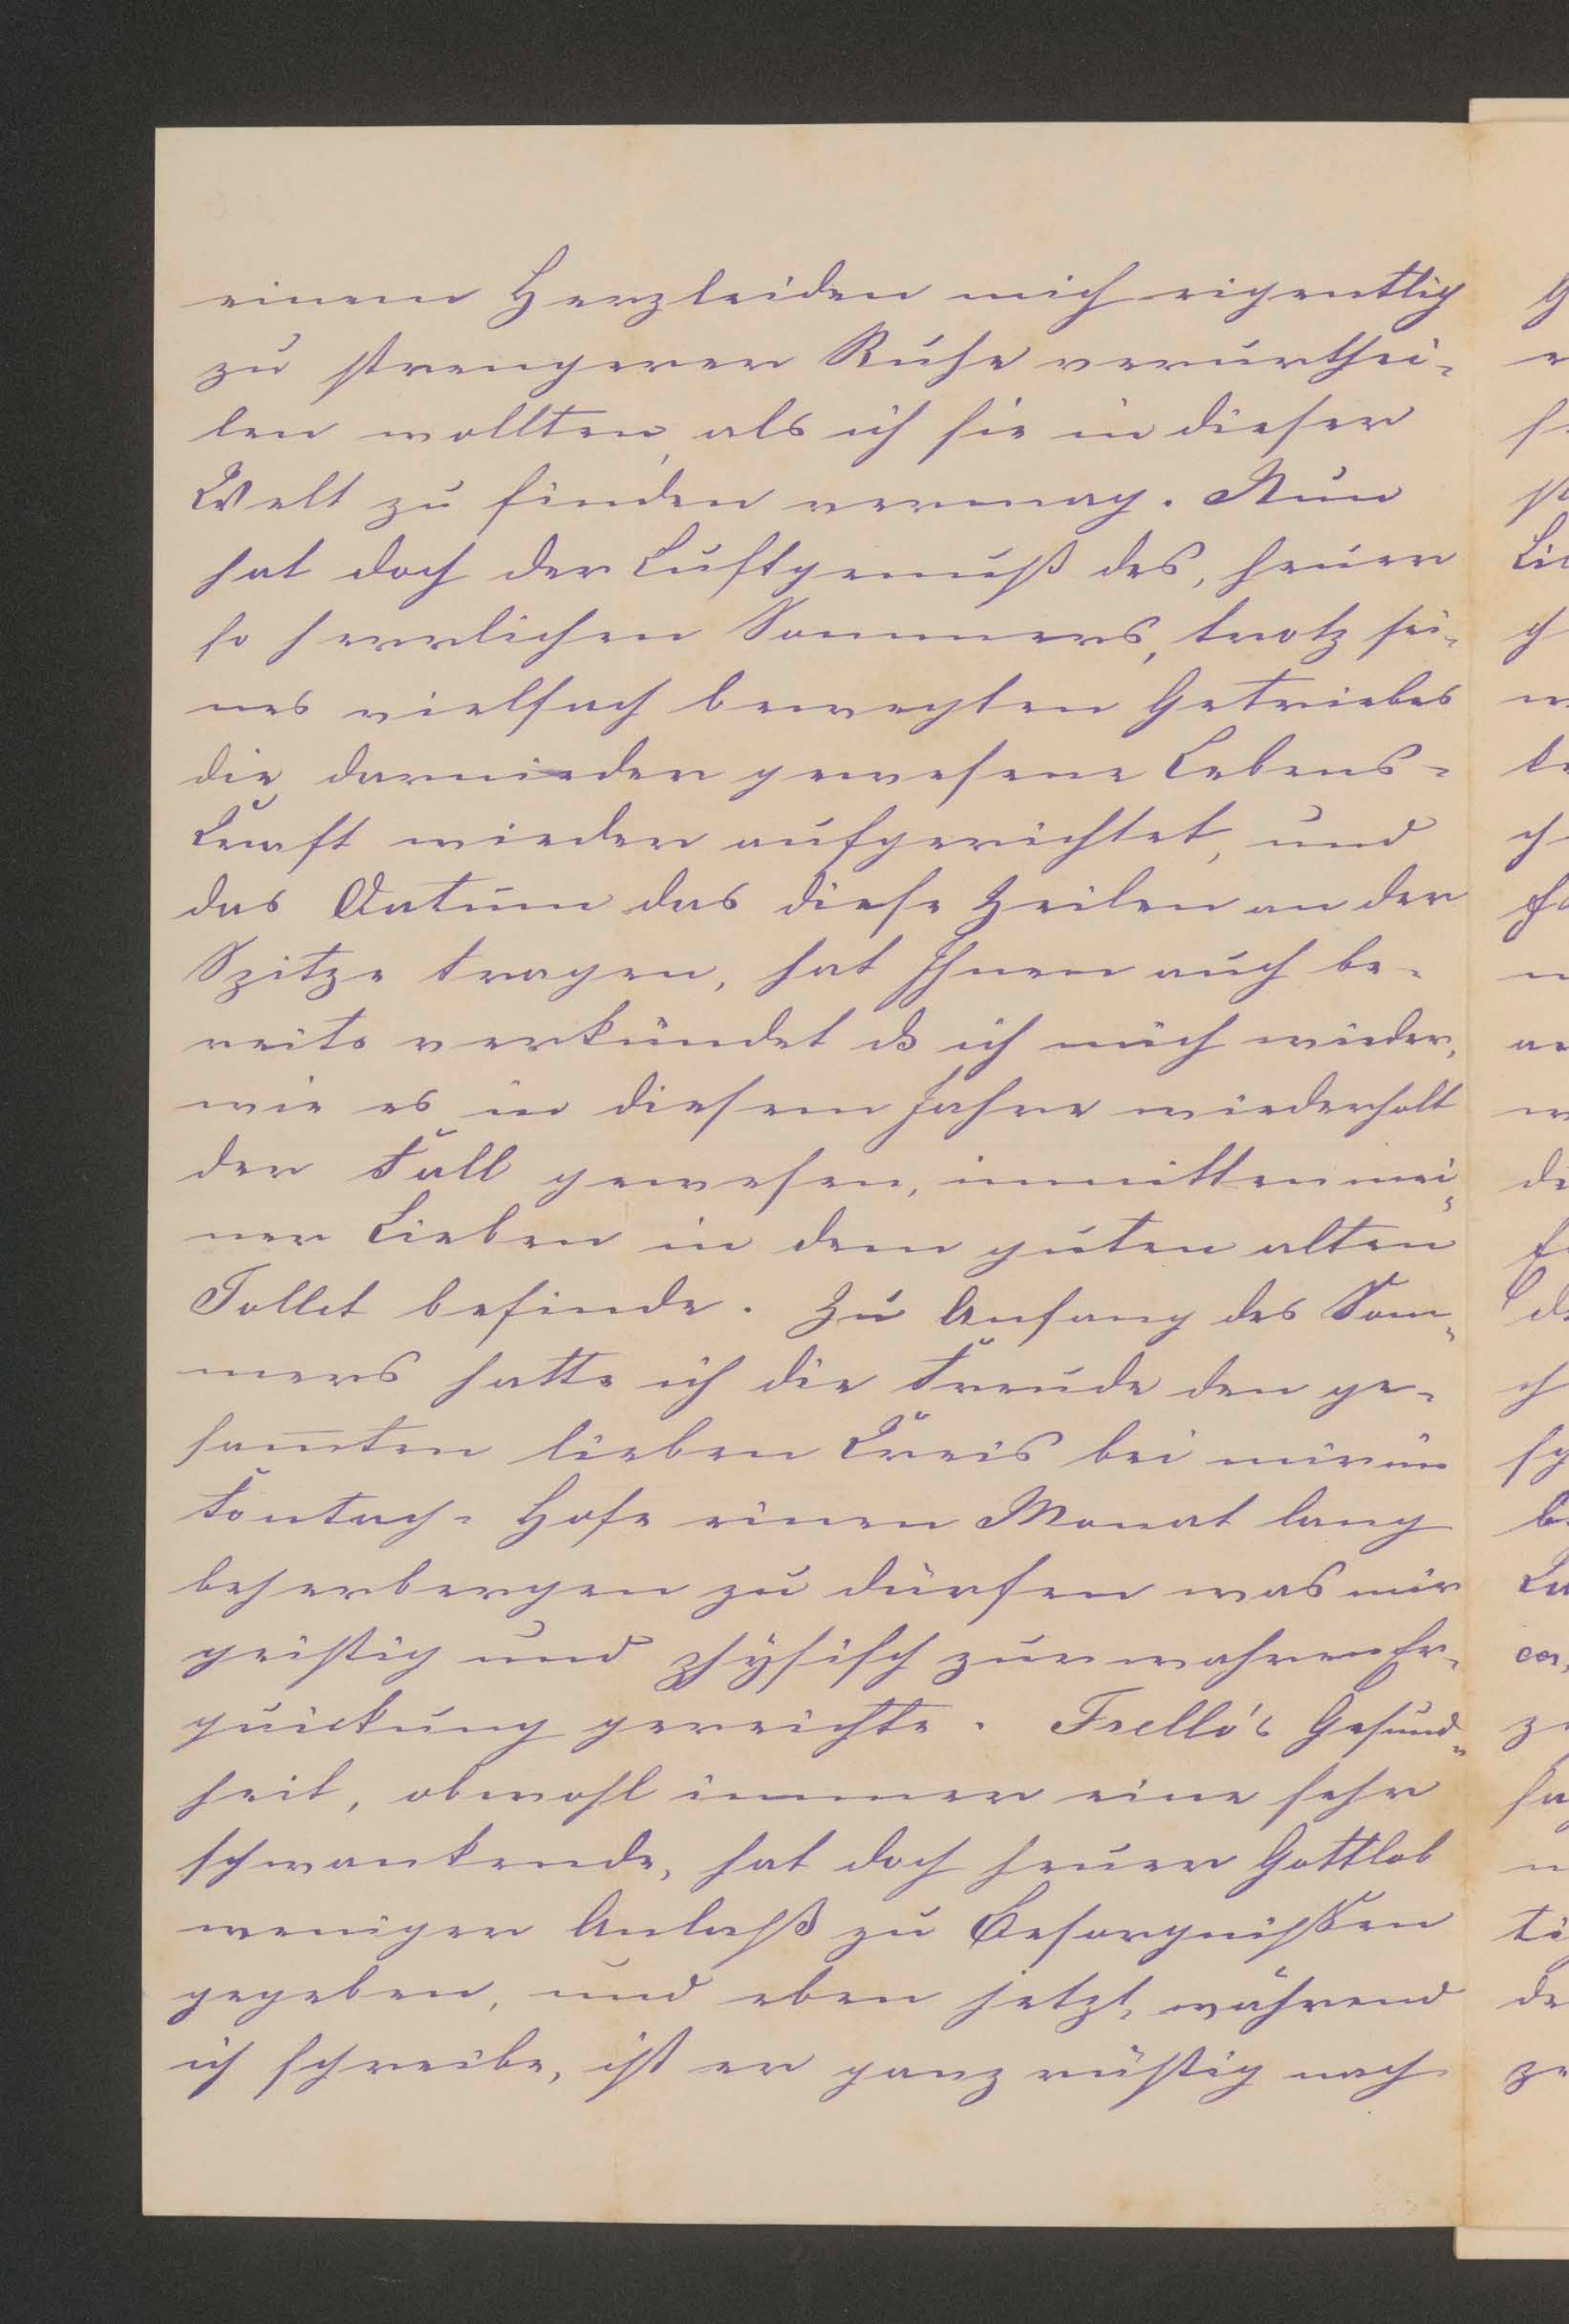 einem Herzleiden mich eigentlich
zu strengerer Ruhe verurthei-
len wollten, als ich sie in dieser
Welt zu finden vermag. Nun
hat doch der Luftgenuß des, heuer
so herrlichen Sommers, trotz sei-
nes vielfach bewegten Getriebes
die darnieder gewesene Lebens-
kraft wieder aufgerichtet, und
das Datum das diese Zeilen an der
Spitze tragen, hat Ihnen auch be-
reits verkündet ds ich mich wieder,
wie es in diesem Jahre wiederholt
der Fall gewesen, inmitten mei-
ner Lieben in dem guten alten
Tollet befinde. Zu Anfang des Som-
mers hatte ich die Freude den ge-
sam̅ten lieben Kreis bei mir im
Hofe einen Monat lang
beherbergen zu dürfen was mir
geistig und physisch zur wahren Er-
quickung gereichte. Gesund-
heit, obwohl immer eine sehr
schwankende, hat doch heuer Gottlob
weniger Anlaß zu Besorgnißen
gegeben, und eben jetzt, während
ich schreibe, ist er ganz rüstig nach